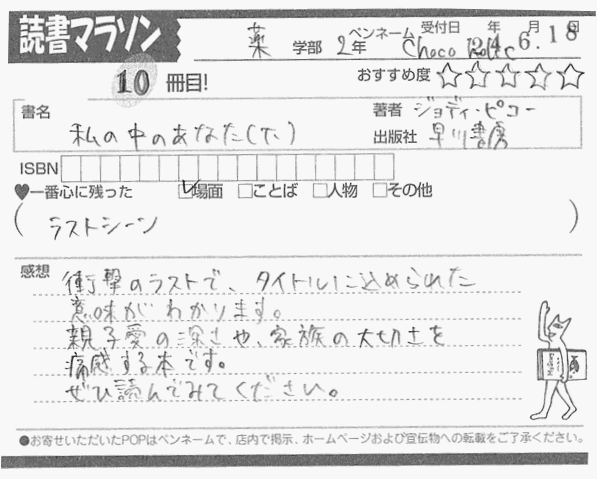 読書マラソン
薬 学部 2年 ペンネーム Choco 受付日 年 月 日
6.18
10 冊目!
おすすめ度 ☆☆☆☆☆
書名 私の中のあなた(下)
著者 ジョディ・ピコー
出版社 早川書房
ISBN
♥一番心に残った □場面 □ことば □人物 □その他
(ラストシーン)
感想
衝撃のラストで、タイトルに込められた
意味がわかります。
親子愛の深さや、家族の大切さを
痛感する本です。
ぜひ読んでみてください。
●お寄せいただいたPOPはペンネームで、店内で掲示、ホームページおよび宣伝物への転載をご了承ください。